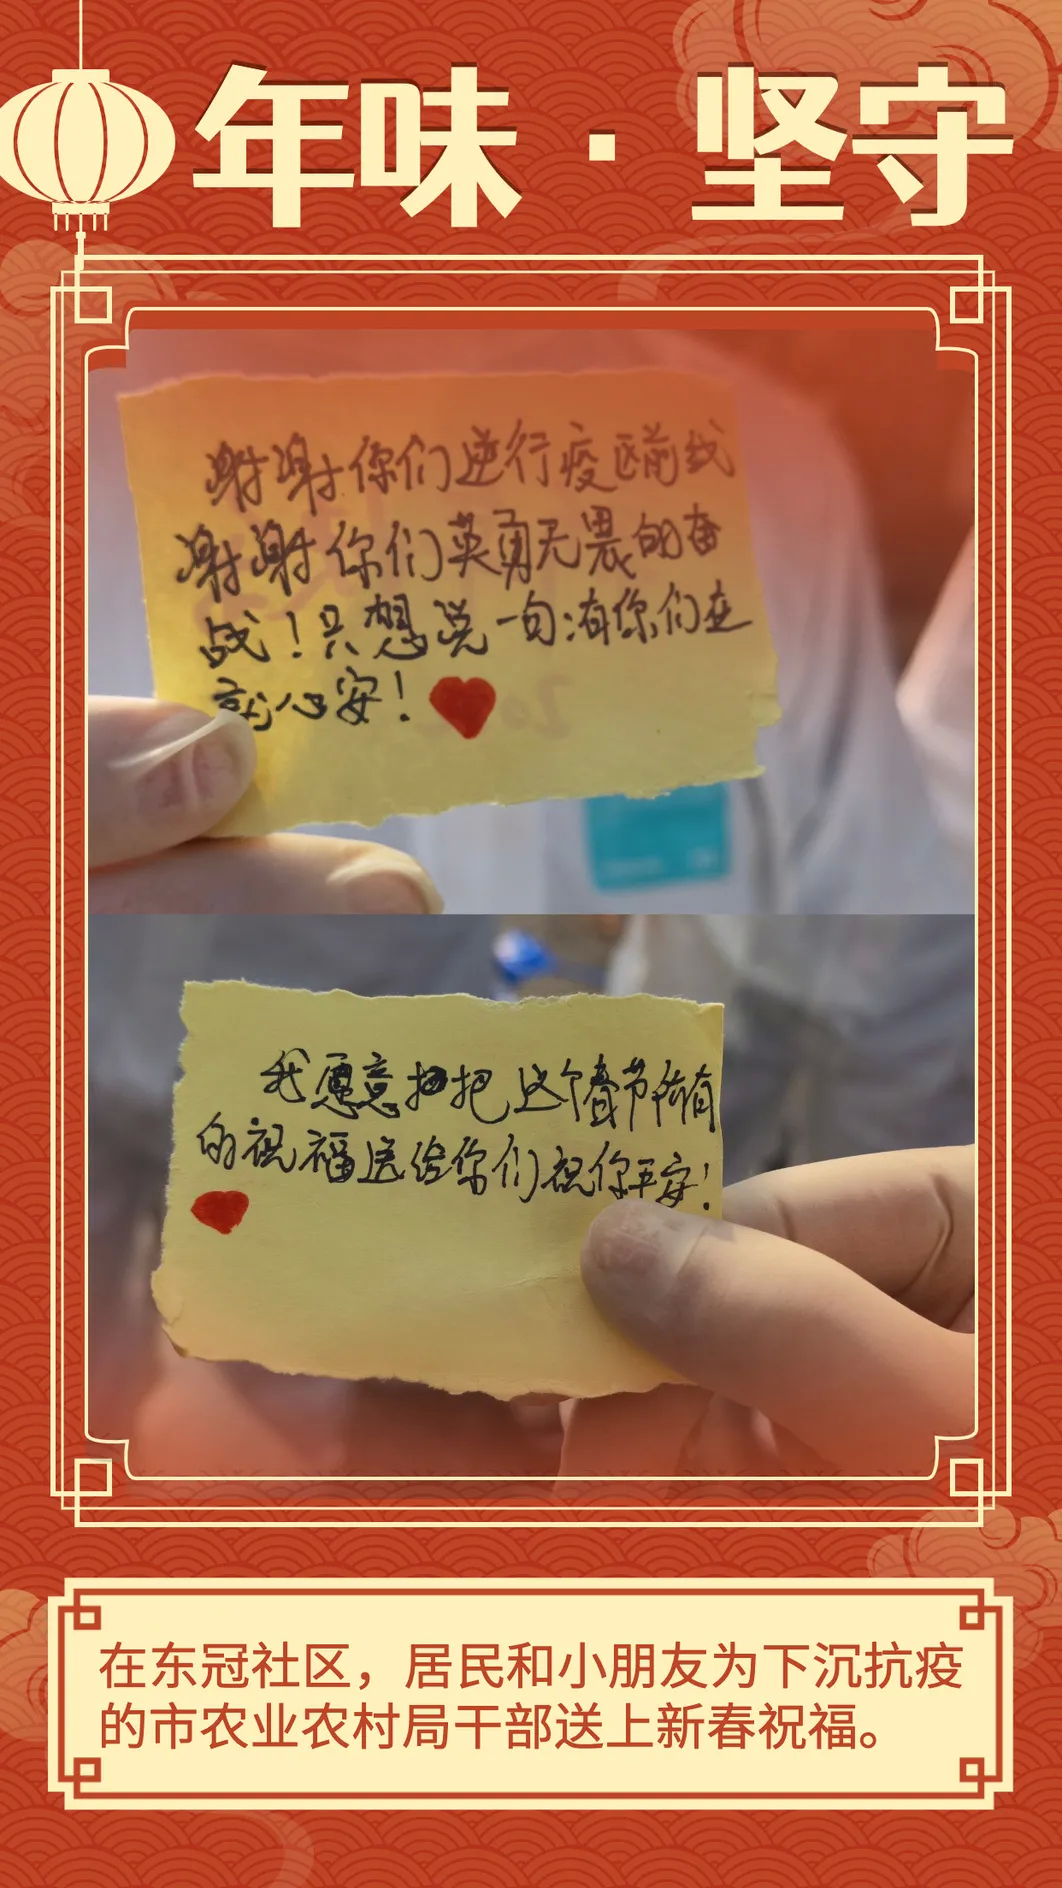 年味·坚守
谢谢你们逆行疫区前线
谢谢你们英勇无畏的奋
战！只想说一句：有你们在
就心安！
我愿意把这个春节所有
的祝福送给你们祝你平安！
在东冠社区，居民和小朋友为下沉抗疫
的市农业农村局干部送上新春祝福。